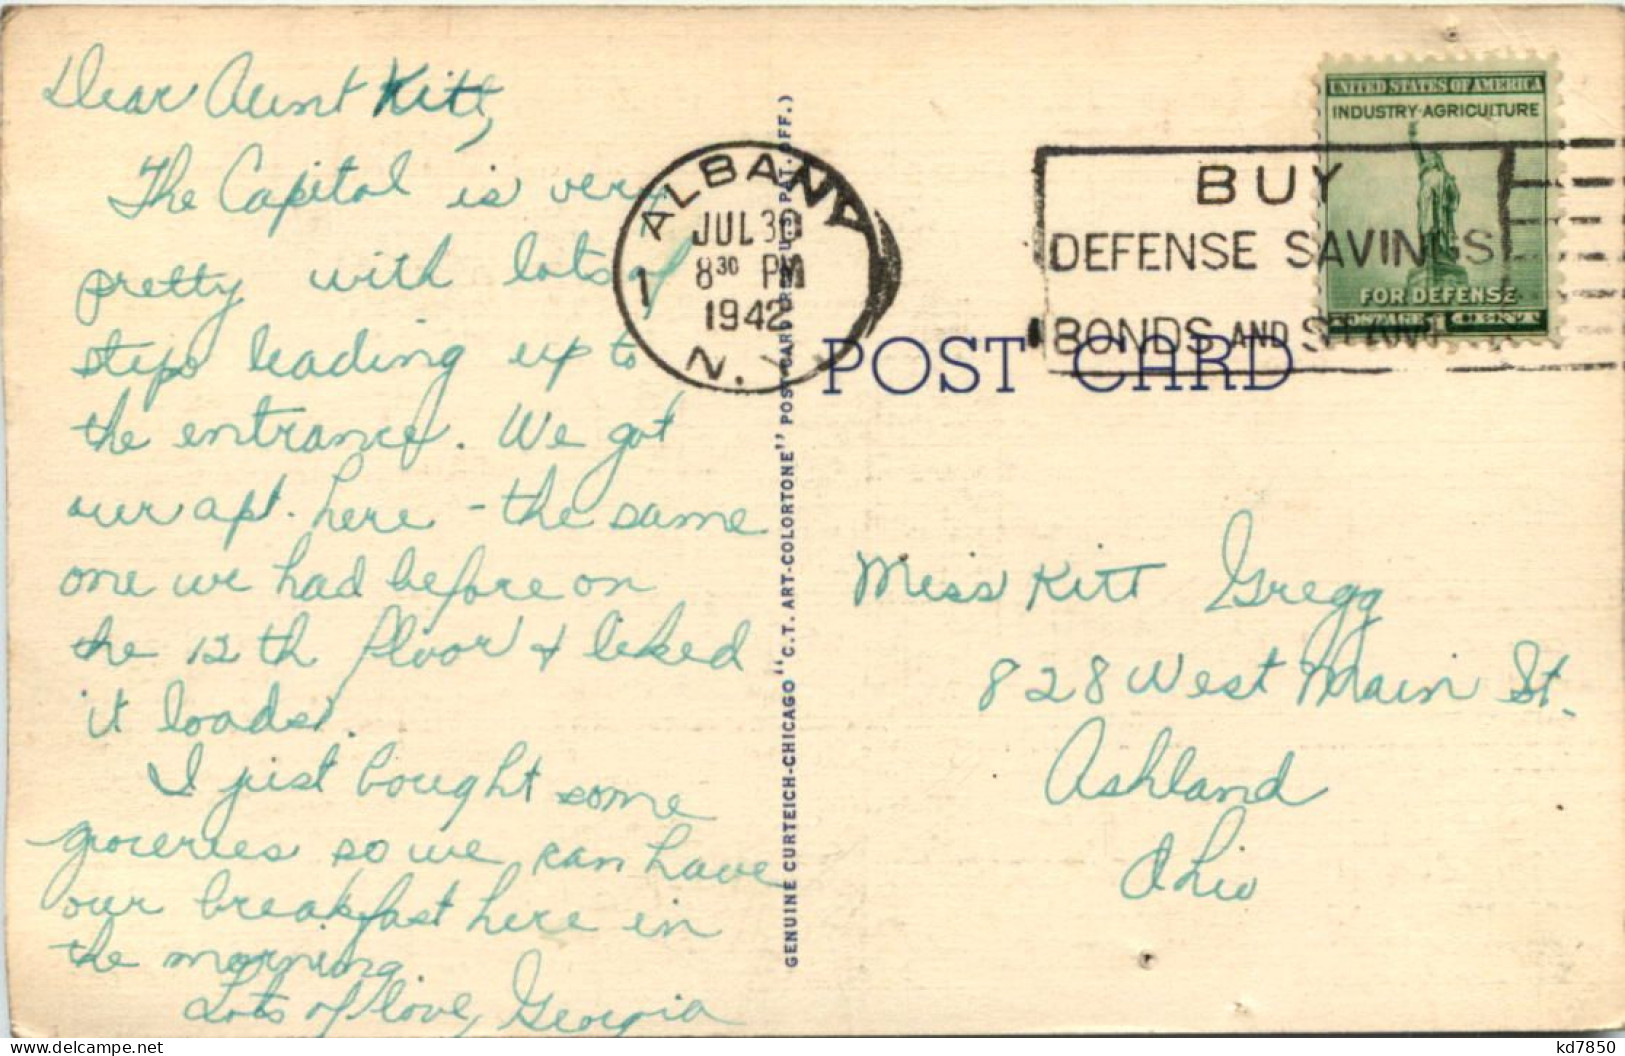 Dear Aunt Kitt,
The Capitol is very
pretty with lots of
steps leading up to
the entrance. We got
our apt. here - the same
one we had before on
the 12th floor & liked
it loads.
I just bought some
groceries so we can have
our breakfast here in
the morning.
Lots of love, Georgia
GENUINE CURTEICH-CHICAGO "C.T. ART-COLORTONE" POST CARD (REG. U.S. PAT. OFF.)
ALBANY
1
JUL 30
8 30 PM
1942
N.Y.
BUY
DEFENSE SAVINGS
BONDS AND STAMPS
UNITED STATES OF AMERICA
INDUSTRY·AGRICULTURE
FOR DEFENSE
POSTAGE 1 CENT
POST CARD
Miss Kitt Gregg
828 West Main St.
Ashland
Ohio
www.delcampe.net
kd7850